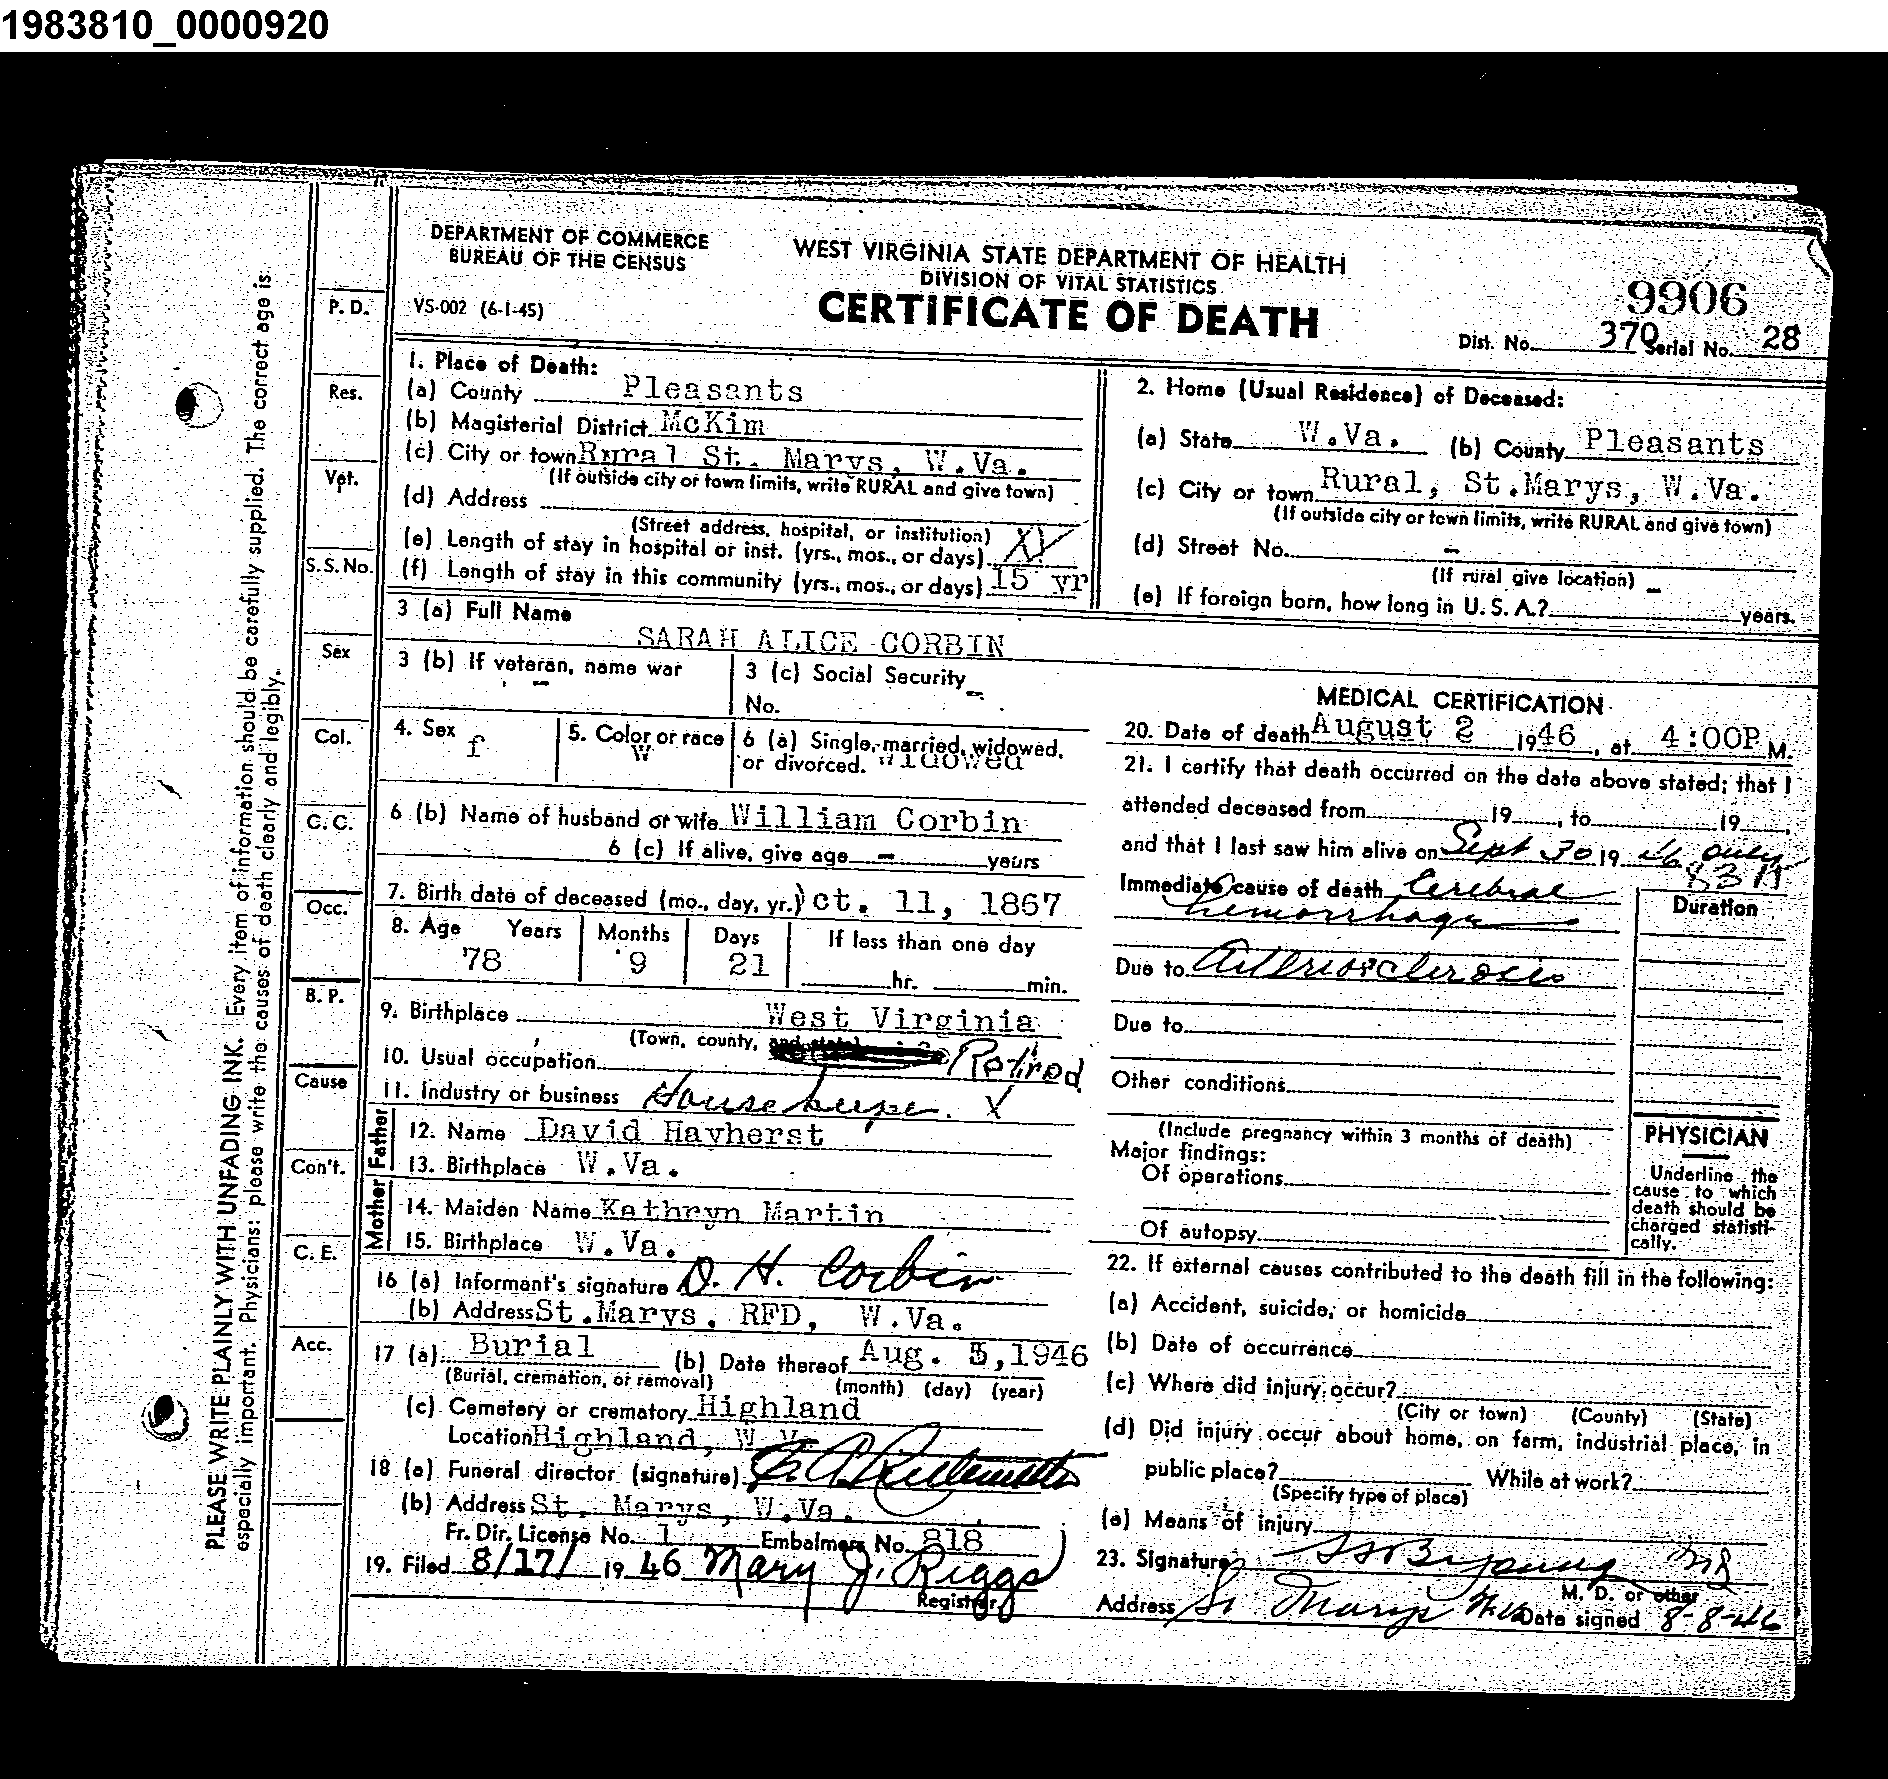 1983810_0000920
DEPARTMENT OF COMMERCE
BUREAU OF THE CENSUS
VS-002 (6-1-45)
WEST VIRGINIA STATE DEPARTMENT OF HEALTH
DIVISION OF VITAL STATISTICS
CERTIFICATE OF DEATH
9906
Dist. No. 370 Serial No. 28
PLEASE WRITE PLAINLY WITH UNFADING INK. Every item of information should be carefully supplied. The correct age is
especially important. Physicians: please write the causes of death clearly and legibly.
P. D.
Res.
Vet.
S. S. No.
Sex
Col.
C. C.
Occ.
B. P.
Cause
Con't.
C. E.
Acc.
1. Place of Death:
(a) County Pleasants
(b) Magisterial District McKim
(c) City or town Rural St. Marys, W.Va.
(If outside city or town limits, write RURAL and give town)
(d) Address
(Street address, hospital, or institution)
(e) Length of stay in hospital or inst. (yrs., mos., or days)
(f) Length of stay in this community (yrs., mos., or days) 15 yr
2. Home (Usual Residence) of Deceased:
(a) State W.Va. (b) County Pleasants
(c) City or town Rural, St.Marys, W.Va.
(If outside city or town limits, write RURAL and give town)
(d) Street No. -
(If rural give location)
(e) If foreign born, how long in U. S. A.? - years.
3 (a) Full Name
SARAH ALICE CORBIN
3 (b) If veteran, name war
-
3 (c) Social Security
No. -
4. Sex f
5. Color or race W
6 (a) Single, married, widowed,
or divorced. widowed
6 (b) Name of husband or wife William Corbin
6 (c) If alive, give age - years
7. Birth date of deceased (mo., day, yr.) Oct. 11, 1867
8. Age Years Months Days If less than one day
78 9 21 hr. min.
9. Birthplace West Virginia
(Town, county,
10. Usual occupation Retired
11. Industry or business Housekeeper. X
Father
12. Name David Hayherst
13. Birthplace W.Va.
Mother
14. Maiden Name Kathryn Martin
15. Birthplace W.Va.
16 (a) Informant's signature D. H. Corbin
(b) Address St.Marys, RFD, W.Va.
17 (a) Burial (b) Date thereof Aug. 5,1946
(Burial, cremation, or removal) (month) (day) (year)
(c) Cemetery or crematory Highland
Location Highland, W.V
18 (a) Funeral director (signature)
(b) Address St. Marys, W.Va.
Fr. Dir. License No. 1 Embalmers No. 818
19. Filed 8/17/ 1946 Mary J. Riggs
Registrar
MEDICAL CERTIFICATION
20. Date of death August 2 1946, at 4:00P M.
21. I certify that death occurred on the date above stated; that I
attended deceased from 19 , to 19 ,
and that I last saw him alive on Sept 30 1946 only
Immediate cause of death Cerebral
hemorrhage
Duration
Due to Arteriosclerosis
Due to
Other conditions
(Include pregnancy within 3 months of death)
Major findings:
Of operations
Of autopsy
PHYSICIAN
Underline the
cause to which
death should be
charged statisti-
cally.
22. If external causes contributed to the death fill in the following:
(a) Accident, suicide, or homicide
(b) Date of occurrence
(c) Where did injury occur?
(City or town) (County) (State)
(d) Did injury occur about home, on farm, industrial place, in
public place? While at work?
(Specify type of place)
(e) Means of injury
23. Signature
M. D. or other
Address St Marys W.Va Date signed 8-8-46